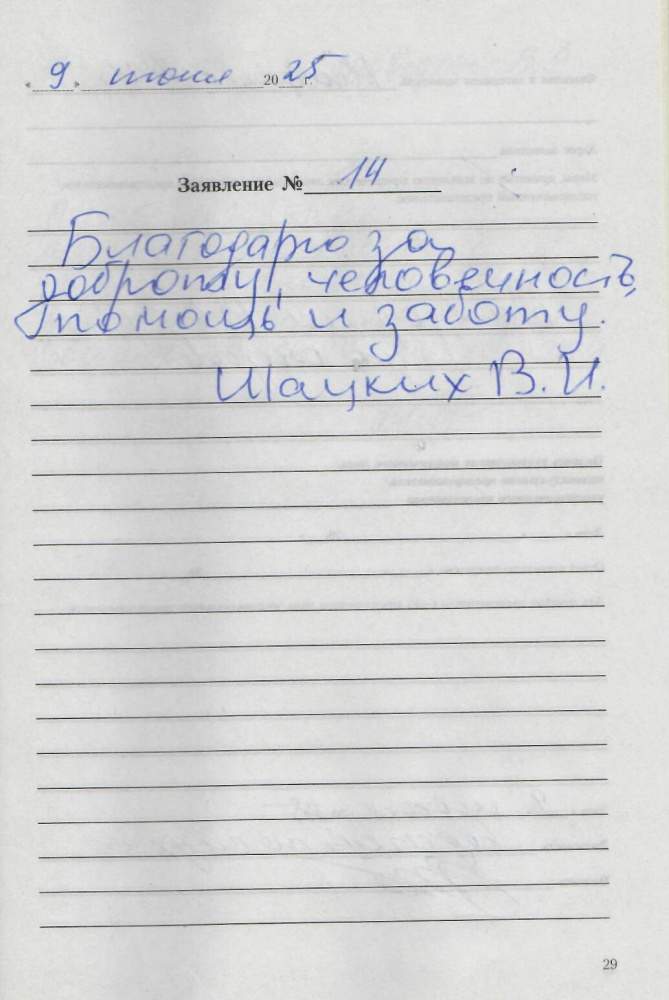 «9» июня 2025 г.
Заявление № 14
Благодарю за
доброту, человечность,
помощь и заботу.
Шацких В. И.
29